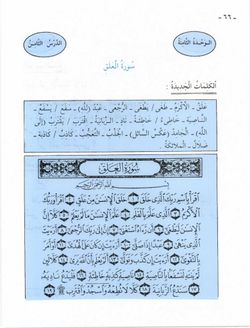 - ٦٦ -
الوحدة الثامنة
الدرس الثامن
سورة العلق
الكلمات الجديدة :
خلق - الأكرم - طغى / يطغى - الرجعى - عبد (لله) - سفع / يسفع -
الناصية - خاطئ / خاطئة - ناد - الزبانية - اقترب / يقترب (إلى
الله) - الجامد (عكس السائل) - الجذب - التعجب - كاذب / كاذبة -
ضلال - الملائكة
سورة العلق
بسم الله الرحمن الرحيم
اقرأ باسم ربك الذي خلق ١ خلق الإنسن من علق ٢ اقرأ وربك
الأكرم ٣ الذي علم بالقلم ٤ علم الإنسن ما لم يعلم ٥ كلا إن
الإنسن ليطغى ٦ أن رءاه استغنى ٧ إن إلى ربك الرجعى ٨ أرءيت
الذي ينهى ٩ عبدا إذا صلى ١٠ أرءيت إن كان على الهدى ١١ أو أمر
بالتقوى ١٢ أرءيت إن كذب وتولى ١٣ ألم يعلم بأن الله يرى ١٤ كلا لئن
لم ينته لنسفعا بالناصية ١٥ ناصية كذبة خاطئة ١٦ فليدع ناديه
١٧ سندع الزبانية ١٨ كلا لا تطعه واسجد واقترب ۩ ١٩